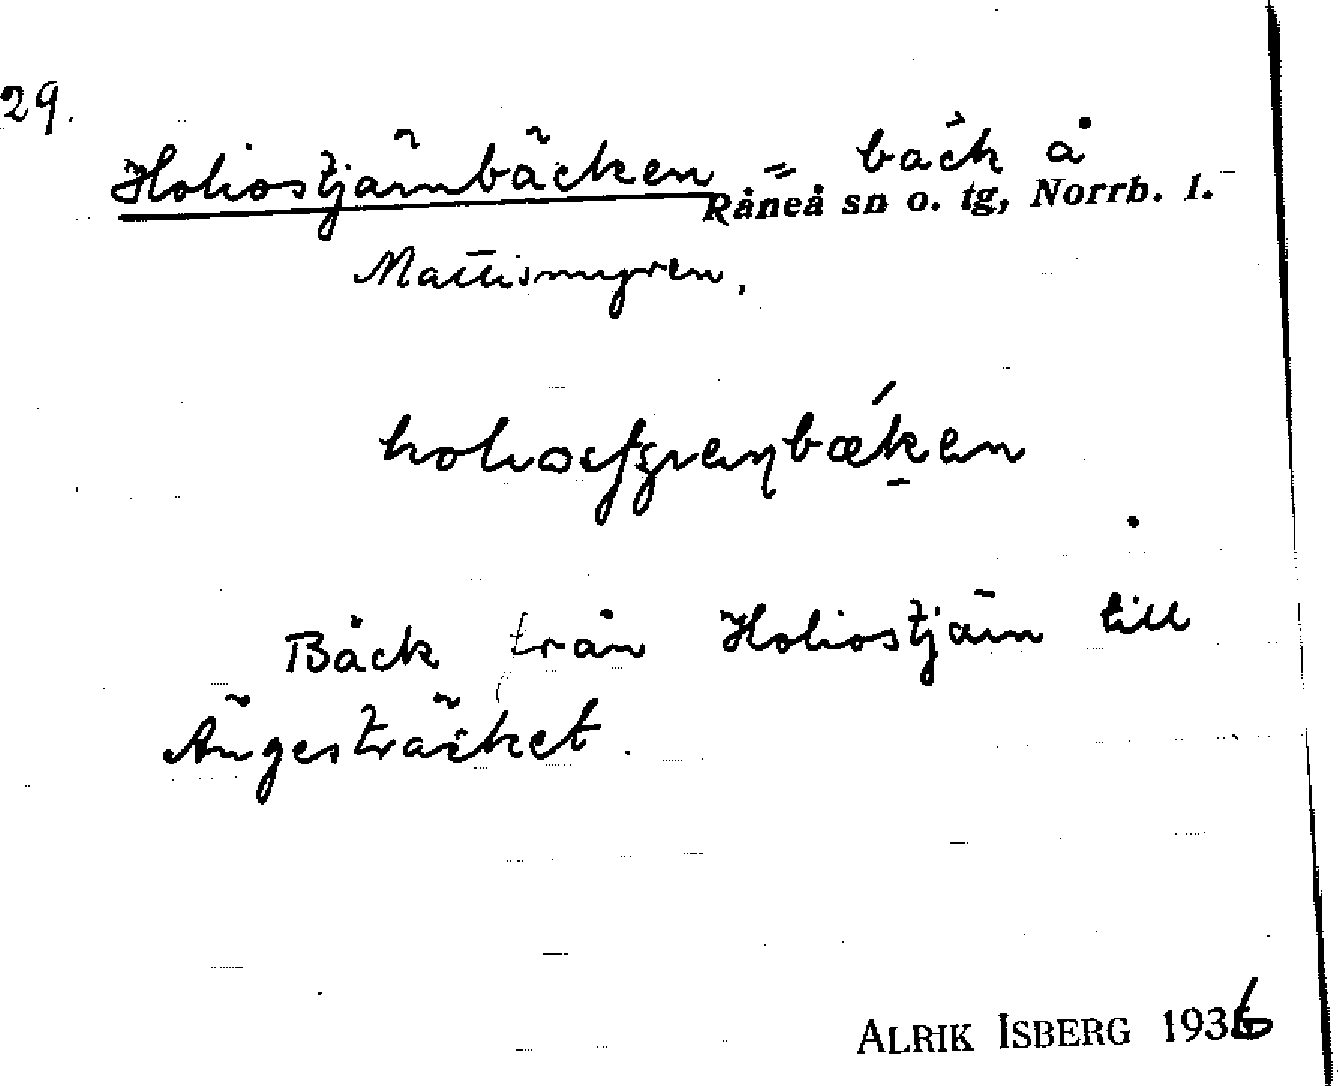 29.
Holiostjärnbäcken = bäck å
Råneå sn o. tg, Norrb. l.
Mattismyren.
Bäck från Holiostjärn till
Ängesträsket.
ALRIK ISBERG 1936